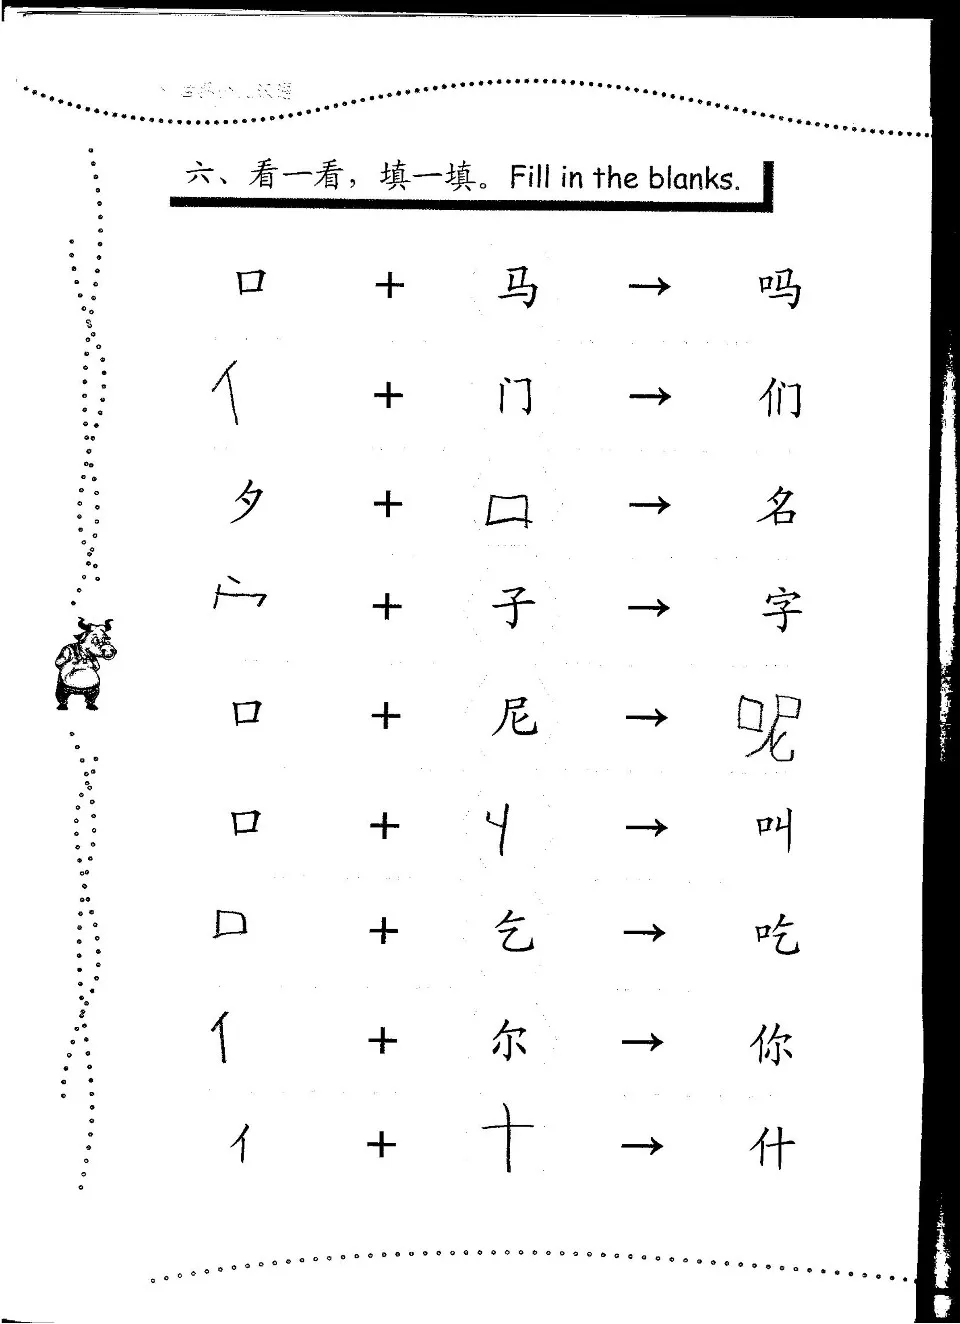 六、看一看，填一填。Fill in the blanks.
口 + 马 → 吗
亻 + 门 → 们
夕 + 口 → 名
宀 + 子 → 字
口 + 尼 → 呢
口 + 丩 → 叫
口 + 乞 → 吃
亻 + 尔 → 你
亻 + 十 → 什